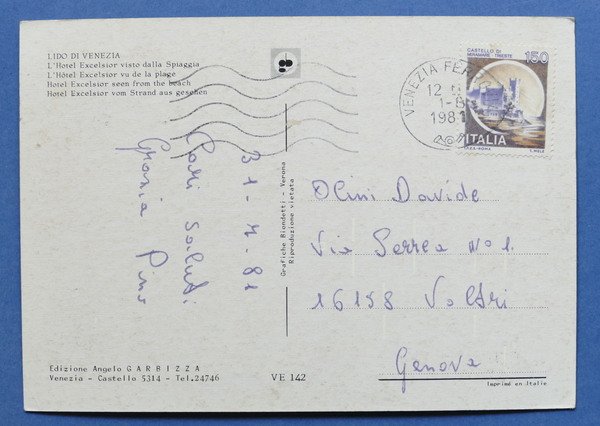 LIDO DI VENEZIA
L'Hotel Excelsior visto dalla Spiaggia
L'Hôtel Excelsior vu de la plage
Hotel Excelsior seen from the beach
Hotel Excelsior vom Strand aus gesehen
CASTELLO DI
MIRAMARE - TRIESTE
150
ITALIA
I.P.Z.S. - ROMA
VENEZIA FER
12
1-8
1981
31-7-81
Cari saluti
Grazia Pino
Grafiche Biondetti - Verona
Riproduzione vietata
Olini Davide
Via Serrea N° 1.
16158 Voltri
Genova
Edizione Angelo GARBIZZA
Venezia - Castello 5314 - Tel.24746
VE 142
Imprimé en Italie